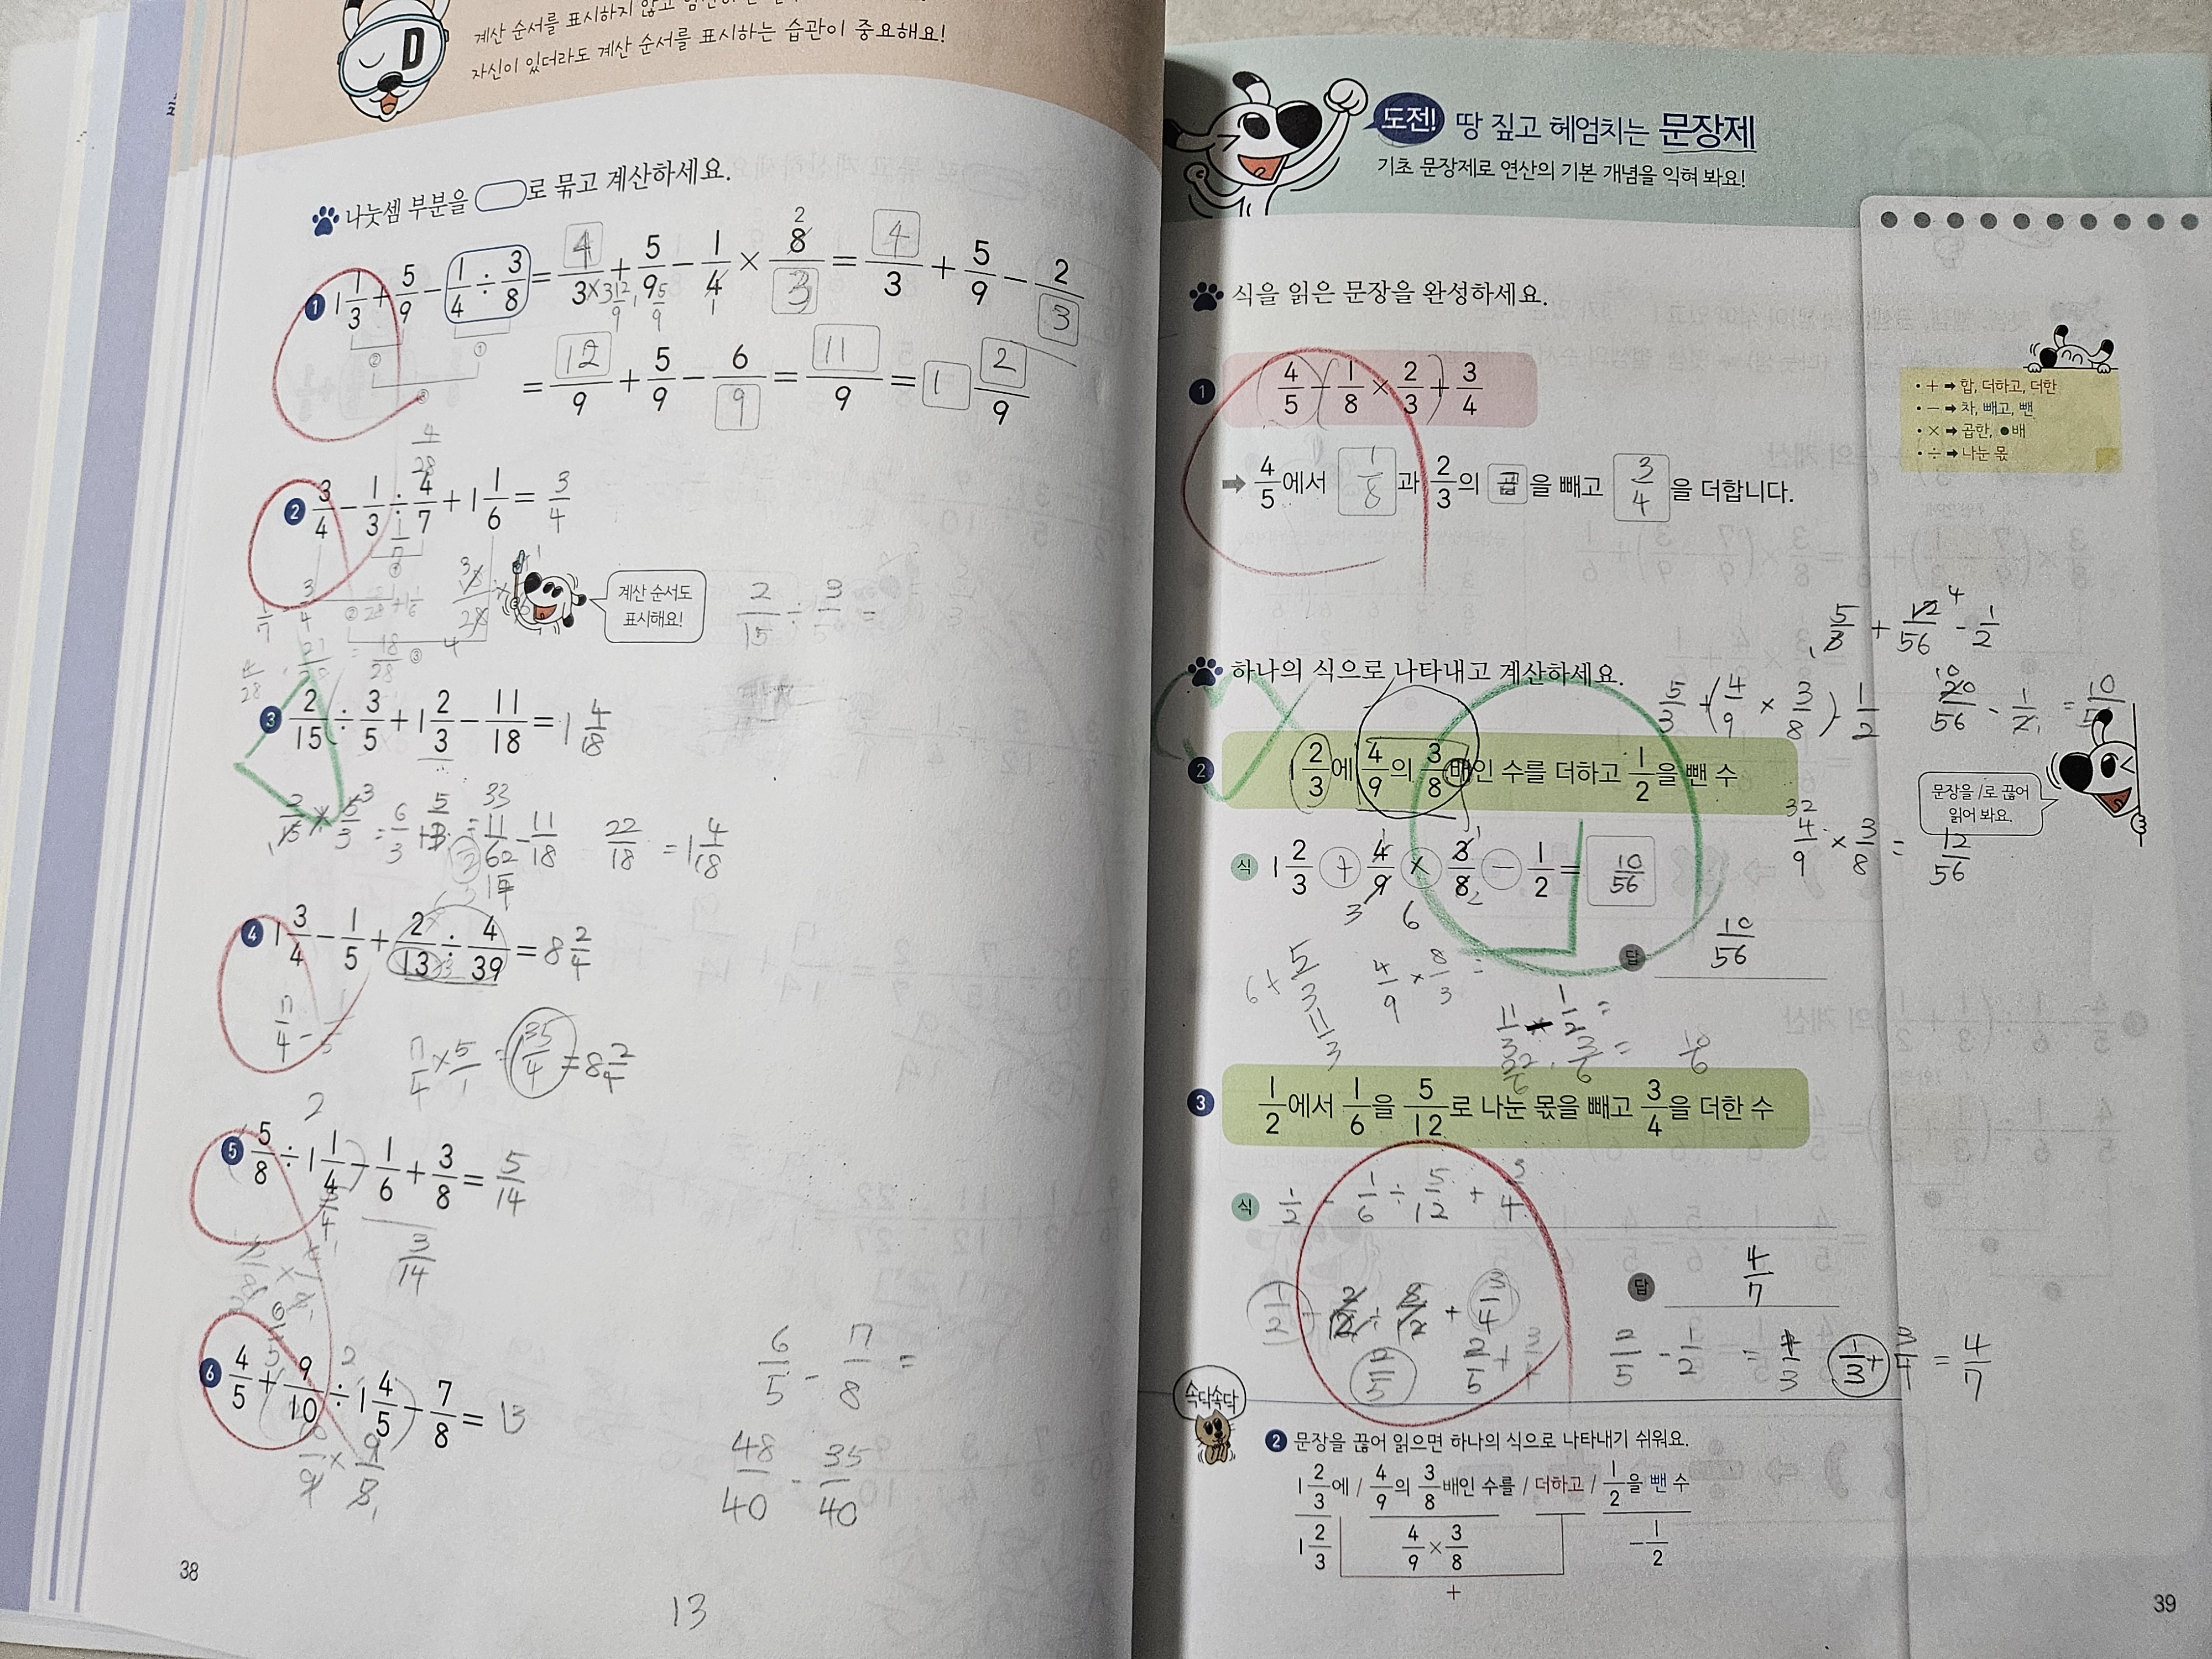 자신이 있더라도 계산 순서를 표시하는 습관이 중요해요!
나눗셈 부분을 로 묶고 계산하세요.
1 1 1/3 + 5/9 - 1/4 ÷ 3/8 = 4/3 + 5/9 - 1/4 × 8/3 = 4/3 + 5/9 - 2/3
= 12/9 + 5/9 - 6/9 = 11/9 = 1 2/9
2 3/4 - 1/3 ÷ 4/7 + 1 1/6 = 3/4
계산 순서도
표시해요!
3 2/15 ÷ 3/5 + 1 2/3 - 11/18 = 1 4/18
22/18 = 1 4/18
4 1 3/4 - 1/5 + 2/13 ÷ 4/39 = 8 2/4
7/4 × 5/1 = 35/4 = 8 2/4
5 5/8 ÷ 1 1/4 - 1/6 + 3/8 = 5/14
3/14
6 4/5 + 9/10 ÷ 1 4/5 - 7/8 = 13
6/5 - 7/8 =
48/40 - 35/40
13
38
도전! 땅 짚고 헤엄치는 문장제
기초 문장제로 연산의 기본 개념을 익혀 봐요!
식을 읽은 문장을 완성하세요.
1 4/5 - 1/8 × 2/3 + 3/4
➡ 4/5에서 1/8과 2/3의 곱을 빼고 3/4을 더합니다.
• + ➡ 합, 더하고, 더한
• - ➡ 차, 빼고, 뺀
• × ➡ 곱한, ●배
• ÷ ➡ 나눈 몫
하나의 식으로 나타내고 계산하세요.
2 1 2/3에 4/9의 3/8배인 수를 더하고 1/2을 뺀 수
문장을 /로 끊어
읽어 봐요.
식 1 2/3 + 4/9 × 3/8 - 1/2 = 10/56
4/9 × 3/8 = 12/56
답 10/56
3 1/2에서 1/6을 5/12로 나눈 몫을 빼고 3/4을 더한 수
식 1/2 - 1/6 ÷ 5/12 + 3/4
답 4/7
1/3 + 3/4 = 4/7
속닥속닥
2 문장을 끊어 읽으면 하나의 식으로 나타내기 쉬워요.
1 2/3에 / 4/9의 3/8배인 수를 / 더하고 / 1/2을 뺀 수
1 2/3 4/9 × 3/8 - 1/2
+
39